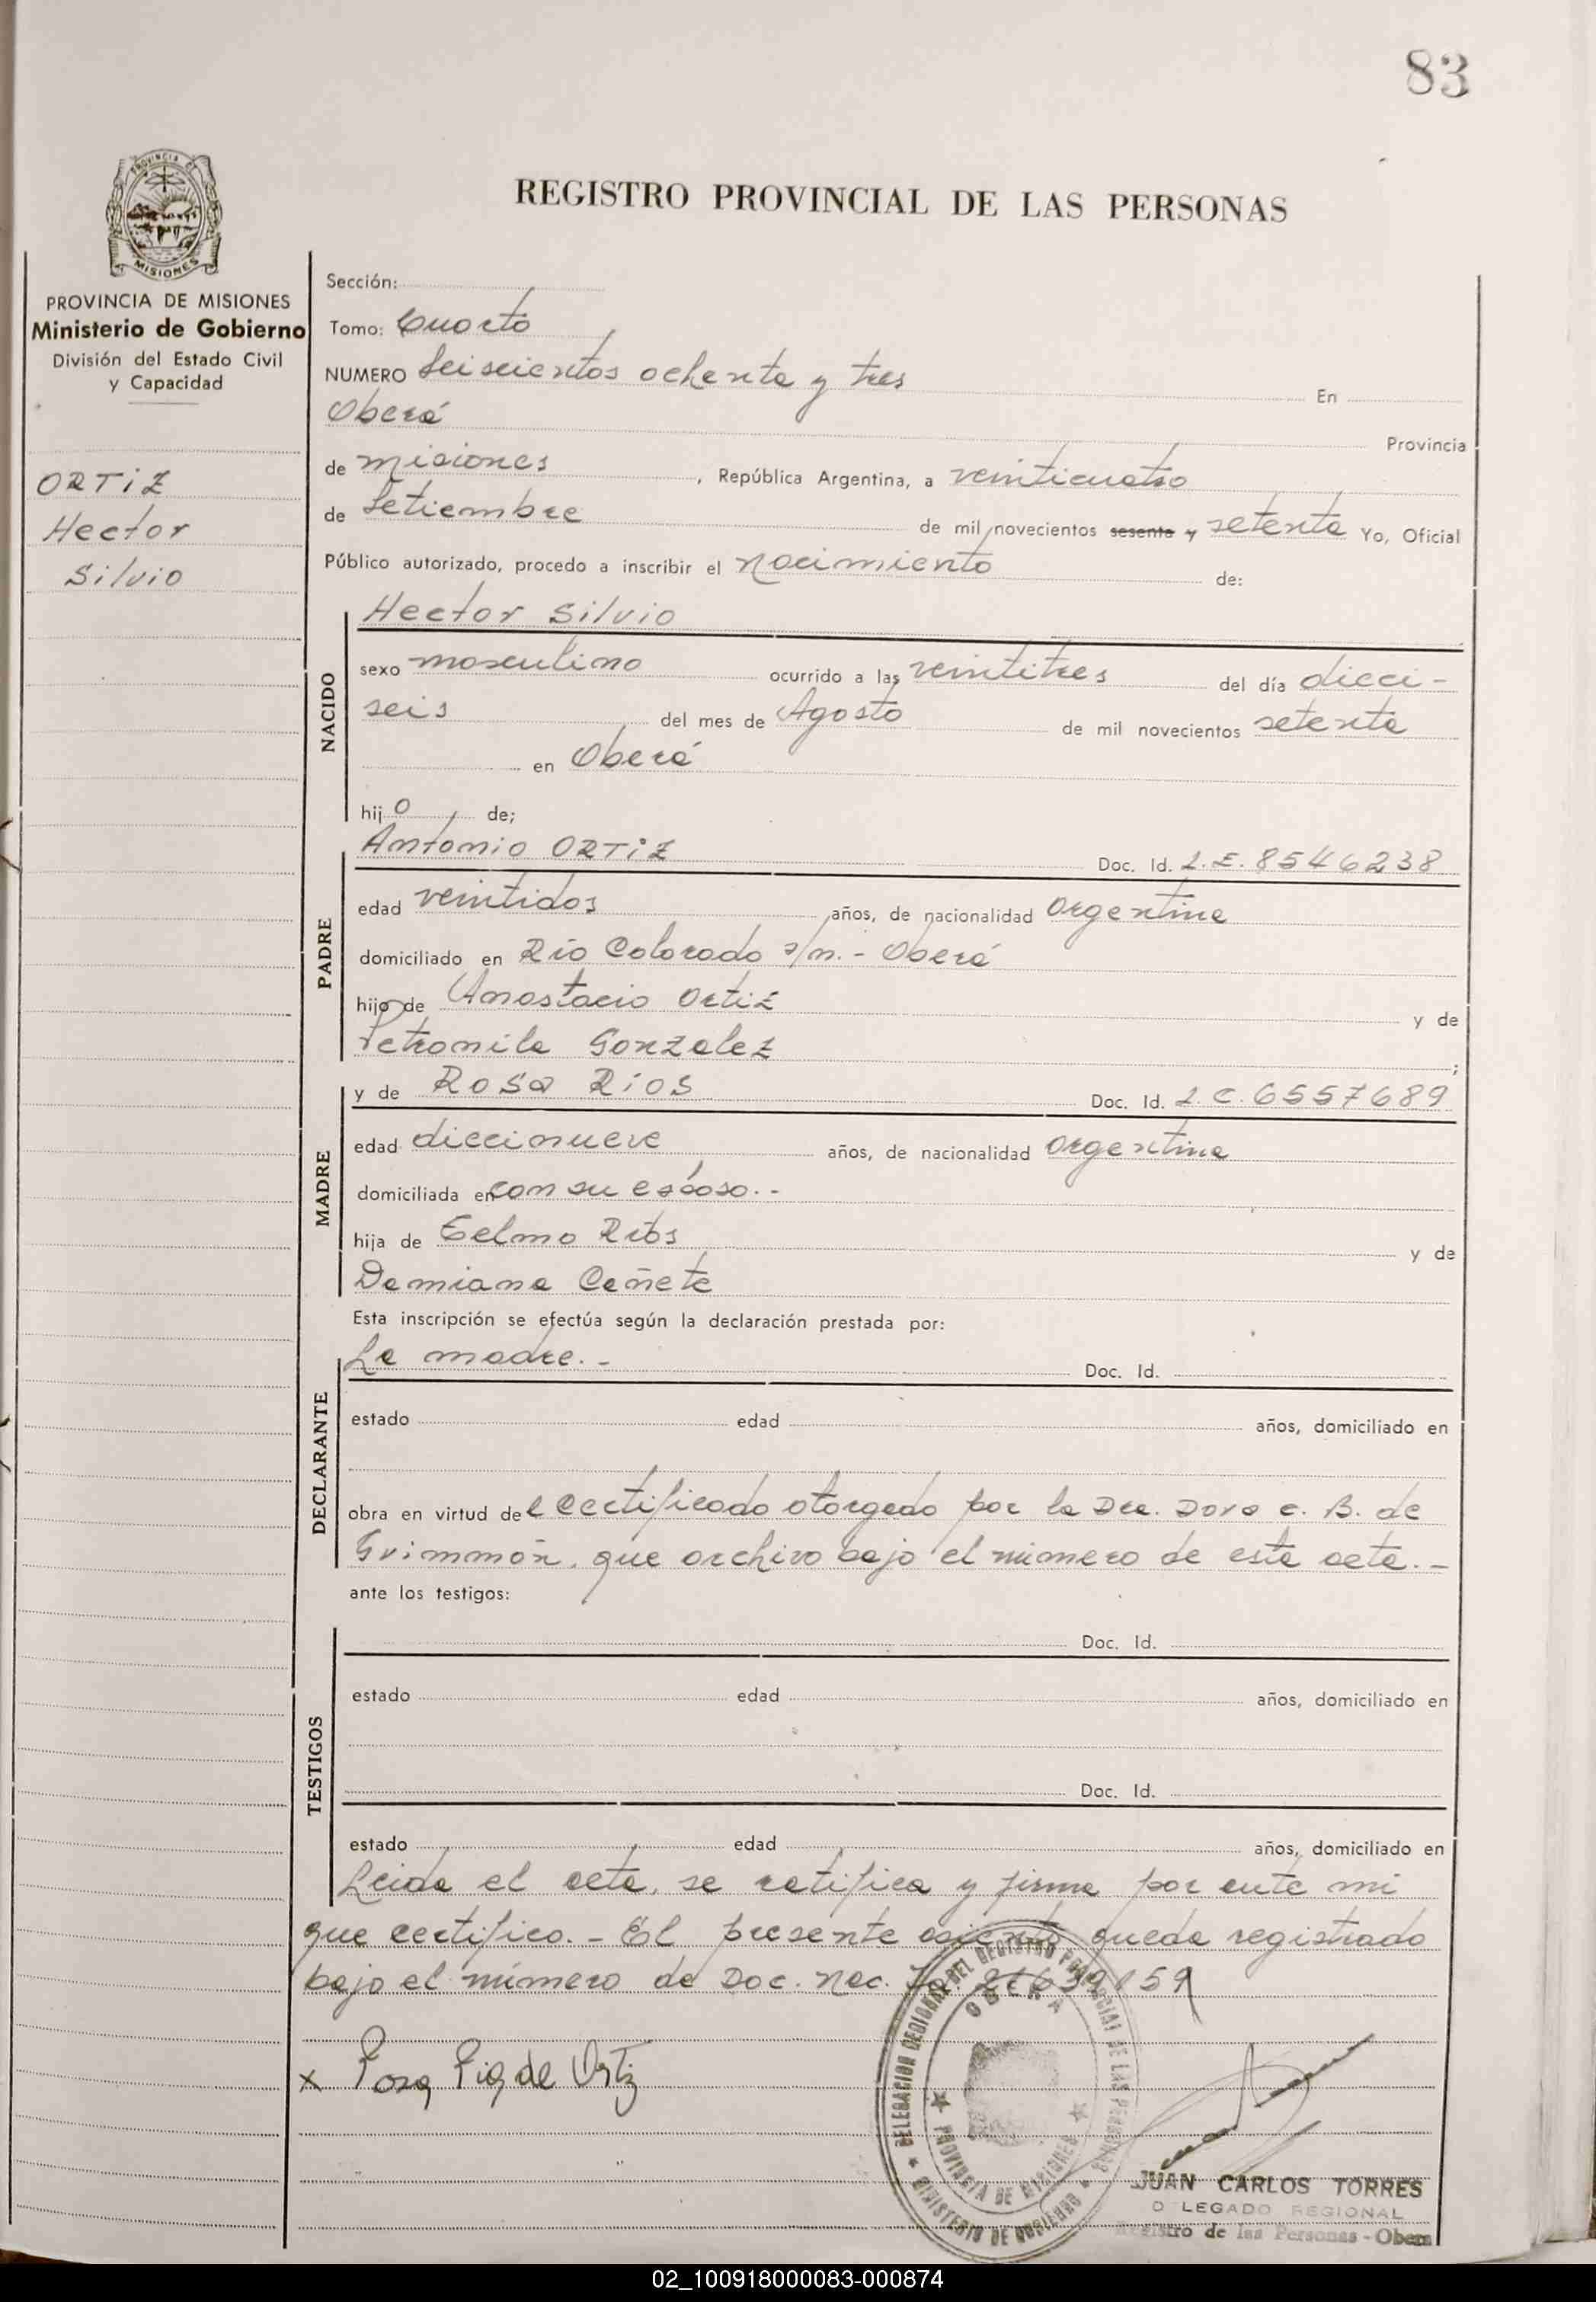 83
REGISTRO PROVINCIAL DE LAS PERSONAS
PROVINCIA DE MISIONES
PROVINCIA DE MISIONES
Ministerio de Gobierno
División del Estado Civil
y Capacidad
ORTiZ
Hector
Silvio
Sección:
Tomo: Cuarto
NUMERO Seiscientos ochenta y tres En
Oberá Provincia
de misiones, República Argentina, a veinticuatro
de Setiembre de mil novecientos sesenta y setenta Yo, Oficial
Público autorizado, procedo a inscribir el nacimiento de:
NACIDO
Hector Silvio
sexo masculino ocurrido a las veintitres del día dieci-
seis del mes de Agosto de mil novecientos setenta
en Oberá
hijo de;
PADRE
Antonio ORTiZ Doc. Id. L.E. 8546238
edad veintidos años, de nacionalidad argentina
domiciliado en Río Colorado s/n.- Oberá
hijo de Anastacio Ortiz y de
Petronila Gonzalez;
MADRE
y de ROSA RÍOS Doc. Id. L.C. 6557689
edad diecinueve años, de nacionalidad argentina
domiciliada en con su esposo.-
hija de Telmo Ríos y de
Damiana Cañete
Esta inscripción se efectúa según la declaración prestada por:
DECLARANTE
La madre.- Doc. Id.
estado edad años, domiciliado en
obra en virtud del certificado otorgado por la Dra. Dora C. B. de
que archivo bajo el número de esta acta.-
ante los testigos:
TESTIGOS
Doc. Id.
estado edad años, domiciliado en
Doc. Id.
estado edad años, domiciliado en
Leida el acta, se ratifica y firma por ante mi
que certifico.- El presente asiento queda registrado
bajo el número de Doc. Nac.
x Rosa Rios de Ortiz
DELEGACION REGIONAL DEL REGISTRO PROVINCIAL DE LAS PERSONAS
OBERA
PROVINCIA DE MISIONES
MINISTERIO DE GOBIERNO
JUAN CARLOS TORRES
D LEGADO REGIONAL
Registro de las Personas - Obera
02_100918000083-000874